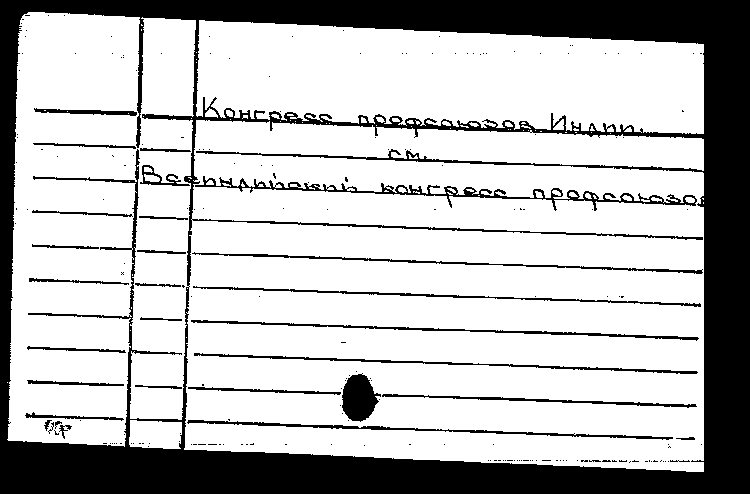 Конгресс профсоюзов Индии.
см.
Всеиндийский конгресс профсоюзов